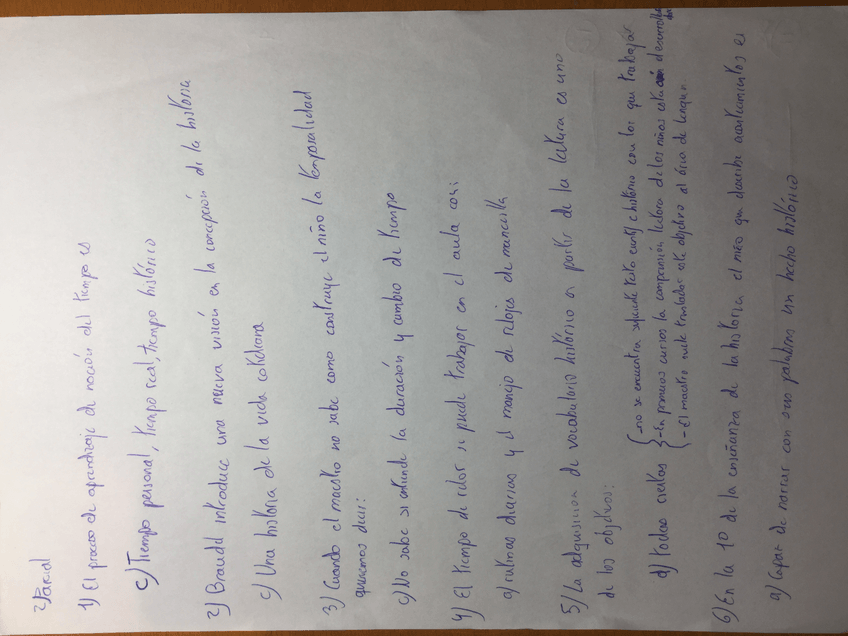 2ºParcial
1) El proceso de aprendizaje de noción del tiempo es
c) Tiempo personal, tiempo real, tiempo histórico
2) Braudel introduce una nueva visión en la concepción de la historia
c) Una historia de la vida cotidiana
3) Cuando el maestro no sabe como construye el niño la temporalidad
queremos decir:
c) No sabe si entiende la duración y cambio de tiempo
4) El tiempo de reloj se puede trabajar en el aula con:
a) rutinas diarias y el manejo de relojes de manecilla
5) La adquisicion de vocabulario histórico a partir de la lectura es uno
de los objetivos:
d) todas ciertas
-no se encuentra suficiente texto e histórico con los que trabajar
-En primeros cursos la comprensión lectora de los niños está desarrollándo
- El maestro suele trasladar este objetivo al área de lengua
6) En la 1ª de la enseñanza de la historia, el niño que describe acontecimientos es
a) Capaz de narrar con sus palabras un hecho histórico